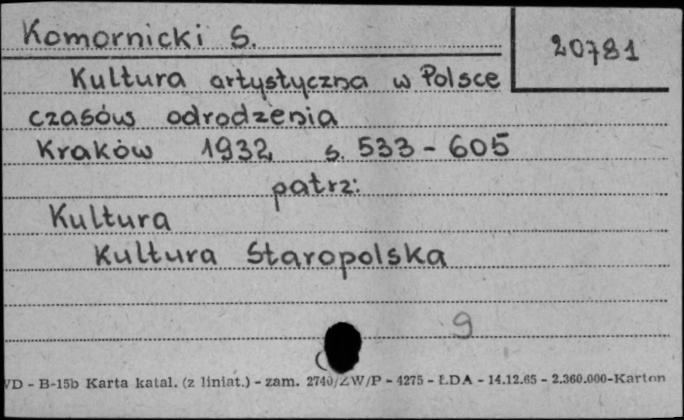 Komornicki S.
20781
Kultura artystyczna w Polsce
czasów odrodzenia
Kraków 1932 s. 533 - 605
patrz:
Kultura
Kultura Staropolska
9
VD - B-15b Karta katal. (z liniat.) - zam. 2740/ZW/P - 4275 - ŁDA - 14.12.65 - 2.360.000-Karton